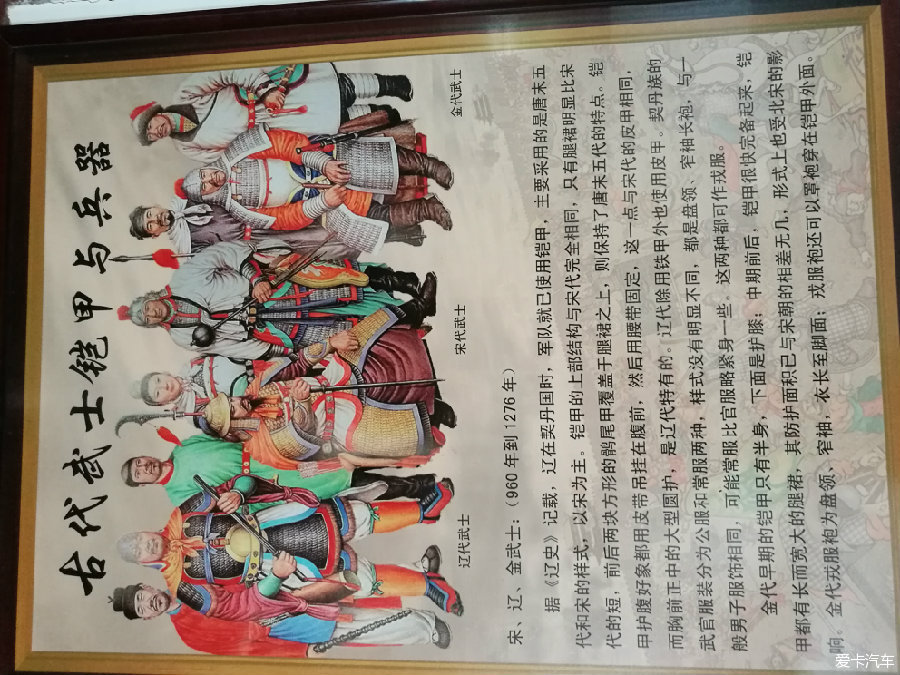 古代武士铠甲与兵器
辽代武士
宋代武士
金代武士
宋、辽、金武士：（960年到1276年）
据《辽史》记载，辽在契丹国时，军队就已使用铠甲，主要采用的是唐末五
代和宋的样式，以宋为主。铠甲的上部结构与宋代完全相同，只有腿裙明显比宋
代的短，前后两块方形的鹘尾甲覆盖于腿裙之上，则保持了唐末五代的特点。铠
甲护腹好象都用皮带吊挂在腹前，然后用腰带固定，这一点与宋代的皮甲相同，
而胸前正中的大型圆护，是辽代特有的。辽代除用铁甲外也使用皮甲。契丹族的
武官服装分为公服和常服两种，样式没有明显不同，都是盘领、窄袖长袍，与一
般男子服饰相同，可能常服比官服略紧身一些，这两种都可作戎服。
金代早期的铠甲只有半身，下面是护膝；中期前后，铠甲很快完备起来，铠
甲都有长而宽大的腿裙，其防护面积已与宋朝的相差无几，形式上也受北宋的影
响。金代戎服袍为盘领、窄袖，衣长至脚面；戎服袍还可以罩袍穿在铠甲外面。
爱卡汽车